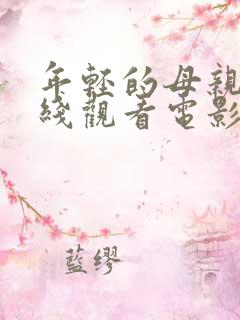 年轻的母親
綫觀看電影
藍缪